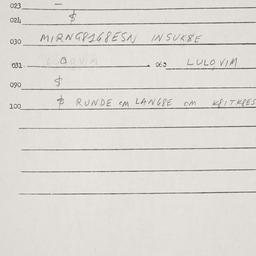 023 –
024 $
030 MIRNG8168ESN INSUK8E
031 063 LULOVIM
090 $
100 $ RUNDE CM LANG8E CM K8ITK8ES